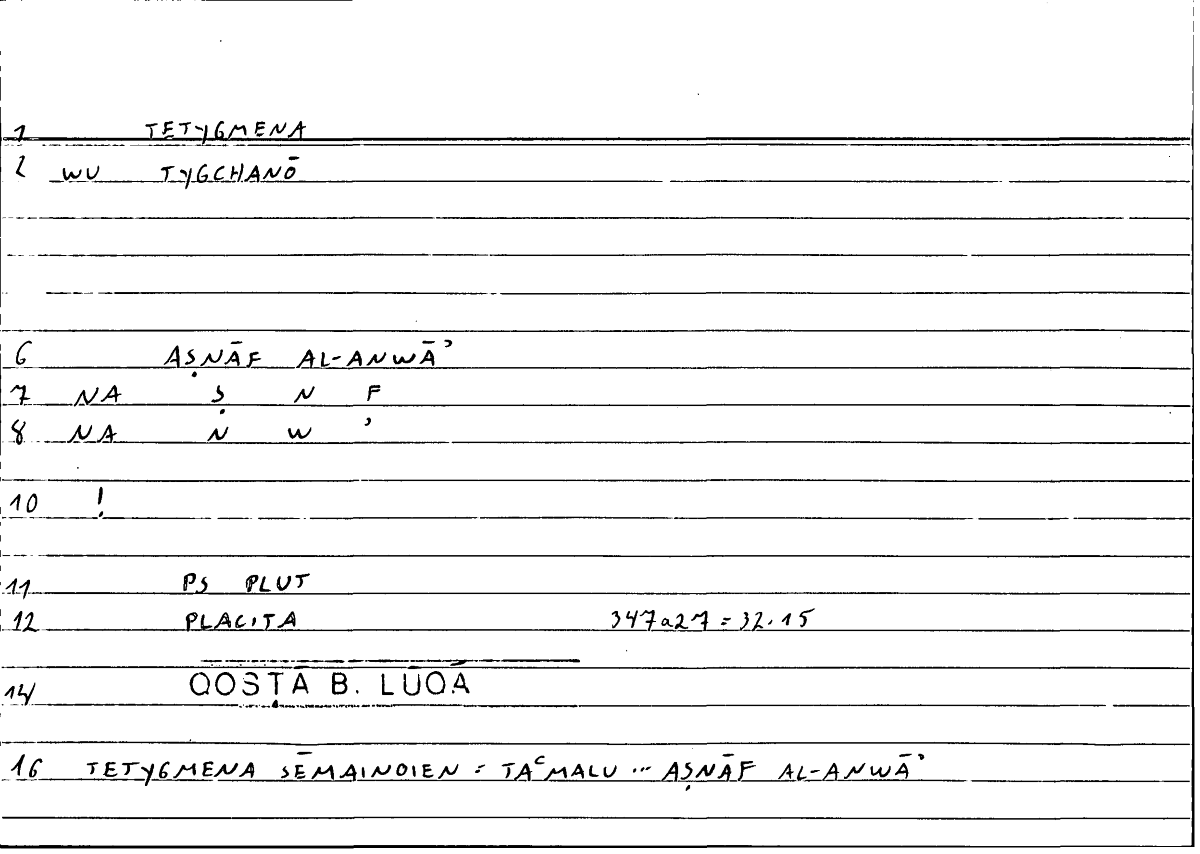 1 TETYGMENA
2 WU TYGCHANŌ
6 AṢNĀF AL-ANWĀʾ
7 NA Ṣ N F
8 NA N W ʾ
10 !
11 PS PLUT
12 PLACITA 347a27 = 32.15
14 QOSṬĀ B. LŪQĀ
16 TETYGMENA SĒMAINOIEN = TAʿMALU ... AṢNĀF AL-ANWĀʾ